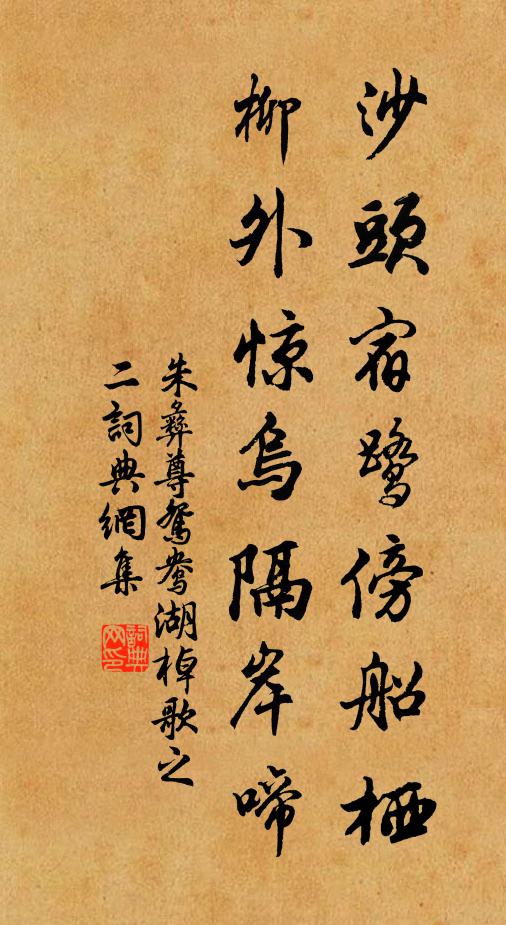 沙頭宿鷺傍船栖
柳外惊烏隔岸啼
朱彝尊鴛鴦湖棹歌之
二詞典網集
詞典
网印